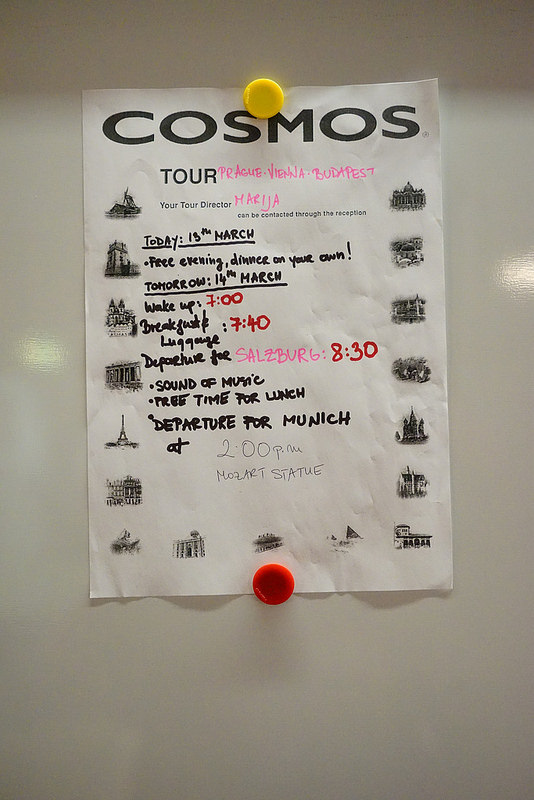 COSMOS®
TOUR PRAGUE·VIENNA·BUDAPEST
Your Tour Director MARIJA
can be contacted through the reception
TODAY: 13TH MARCH
• FREE evening, dinner on your own!
TOMORROW: 14TH MARCH
Wake up: 7:00
Breakfast & : 7:40
Luggage
Departure for SALZBURG: 8:30
• SOUND OF MUSIC
• FREE TIME FOR LUNCH
• DEPARTURE FOR MUNICH
at 2:00 p.m
MOZART STATUE